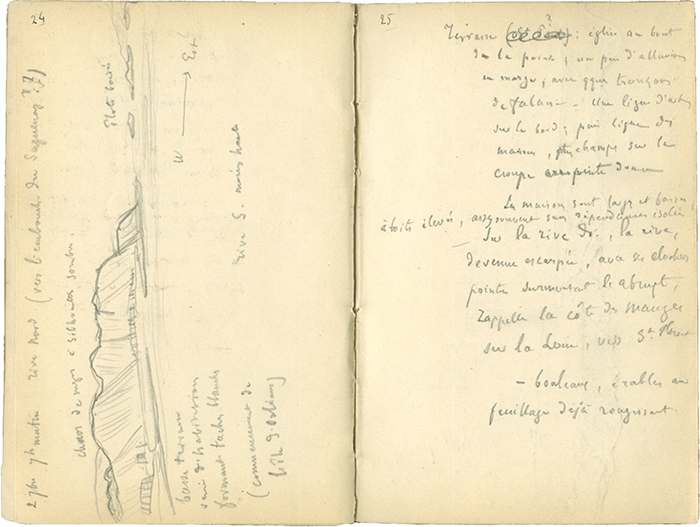 24
2 7bre 7h matin rive Nord (vers l'embouchure du Saguenay ?)
chaos de nuages à silhouettes sombres
îlots boisés
W → Est
rive S. moins haute
basse terrasse
semi d'habitations
formant taches blanches
(commencement de
l'île d'Orléans)
25
Terrasse : église au bout
de la pointe ; un peu d'alluvions
en marge, avec qques tronçons
de falaise - Une ligne d'arbres
sur le bord ; puis ligne des
maisons, champs sur la
croupe
Les maisons sont larges et basses,
à toits élevés, assez souvent sans dépendances isolées
Sur la rive dr., la rive,
devenue escarpée, avec ses clochers
pointus surmontant l'abrupt,
rappelle la côte des Mauges
sur la Loire, vers St Florent
- bouleaux, érables au
feuillage déjà rougissant.